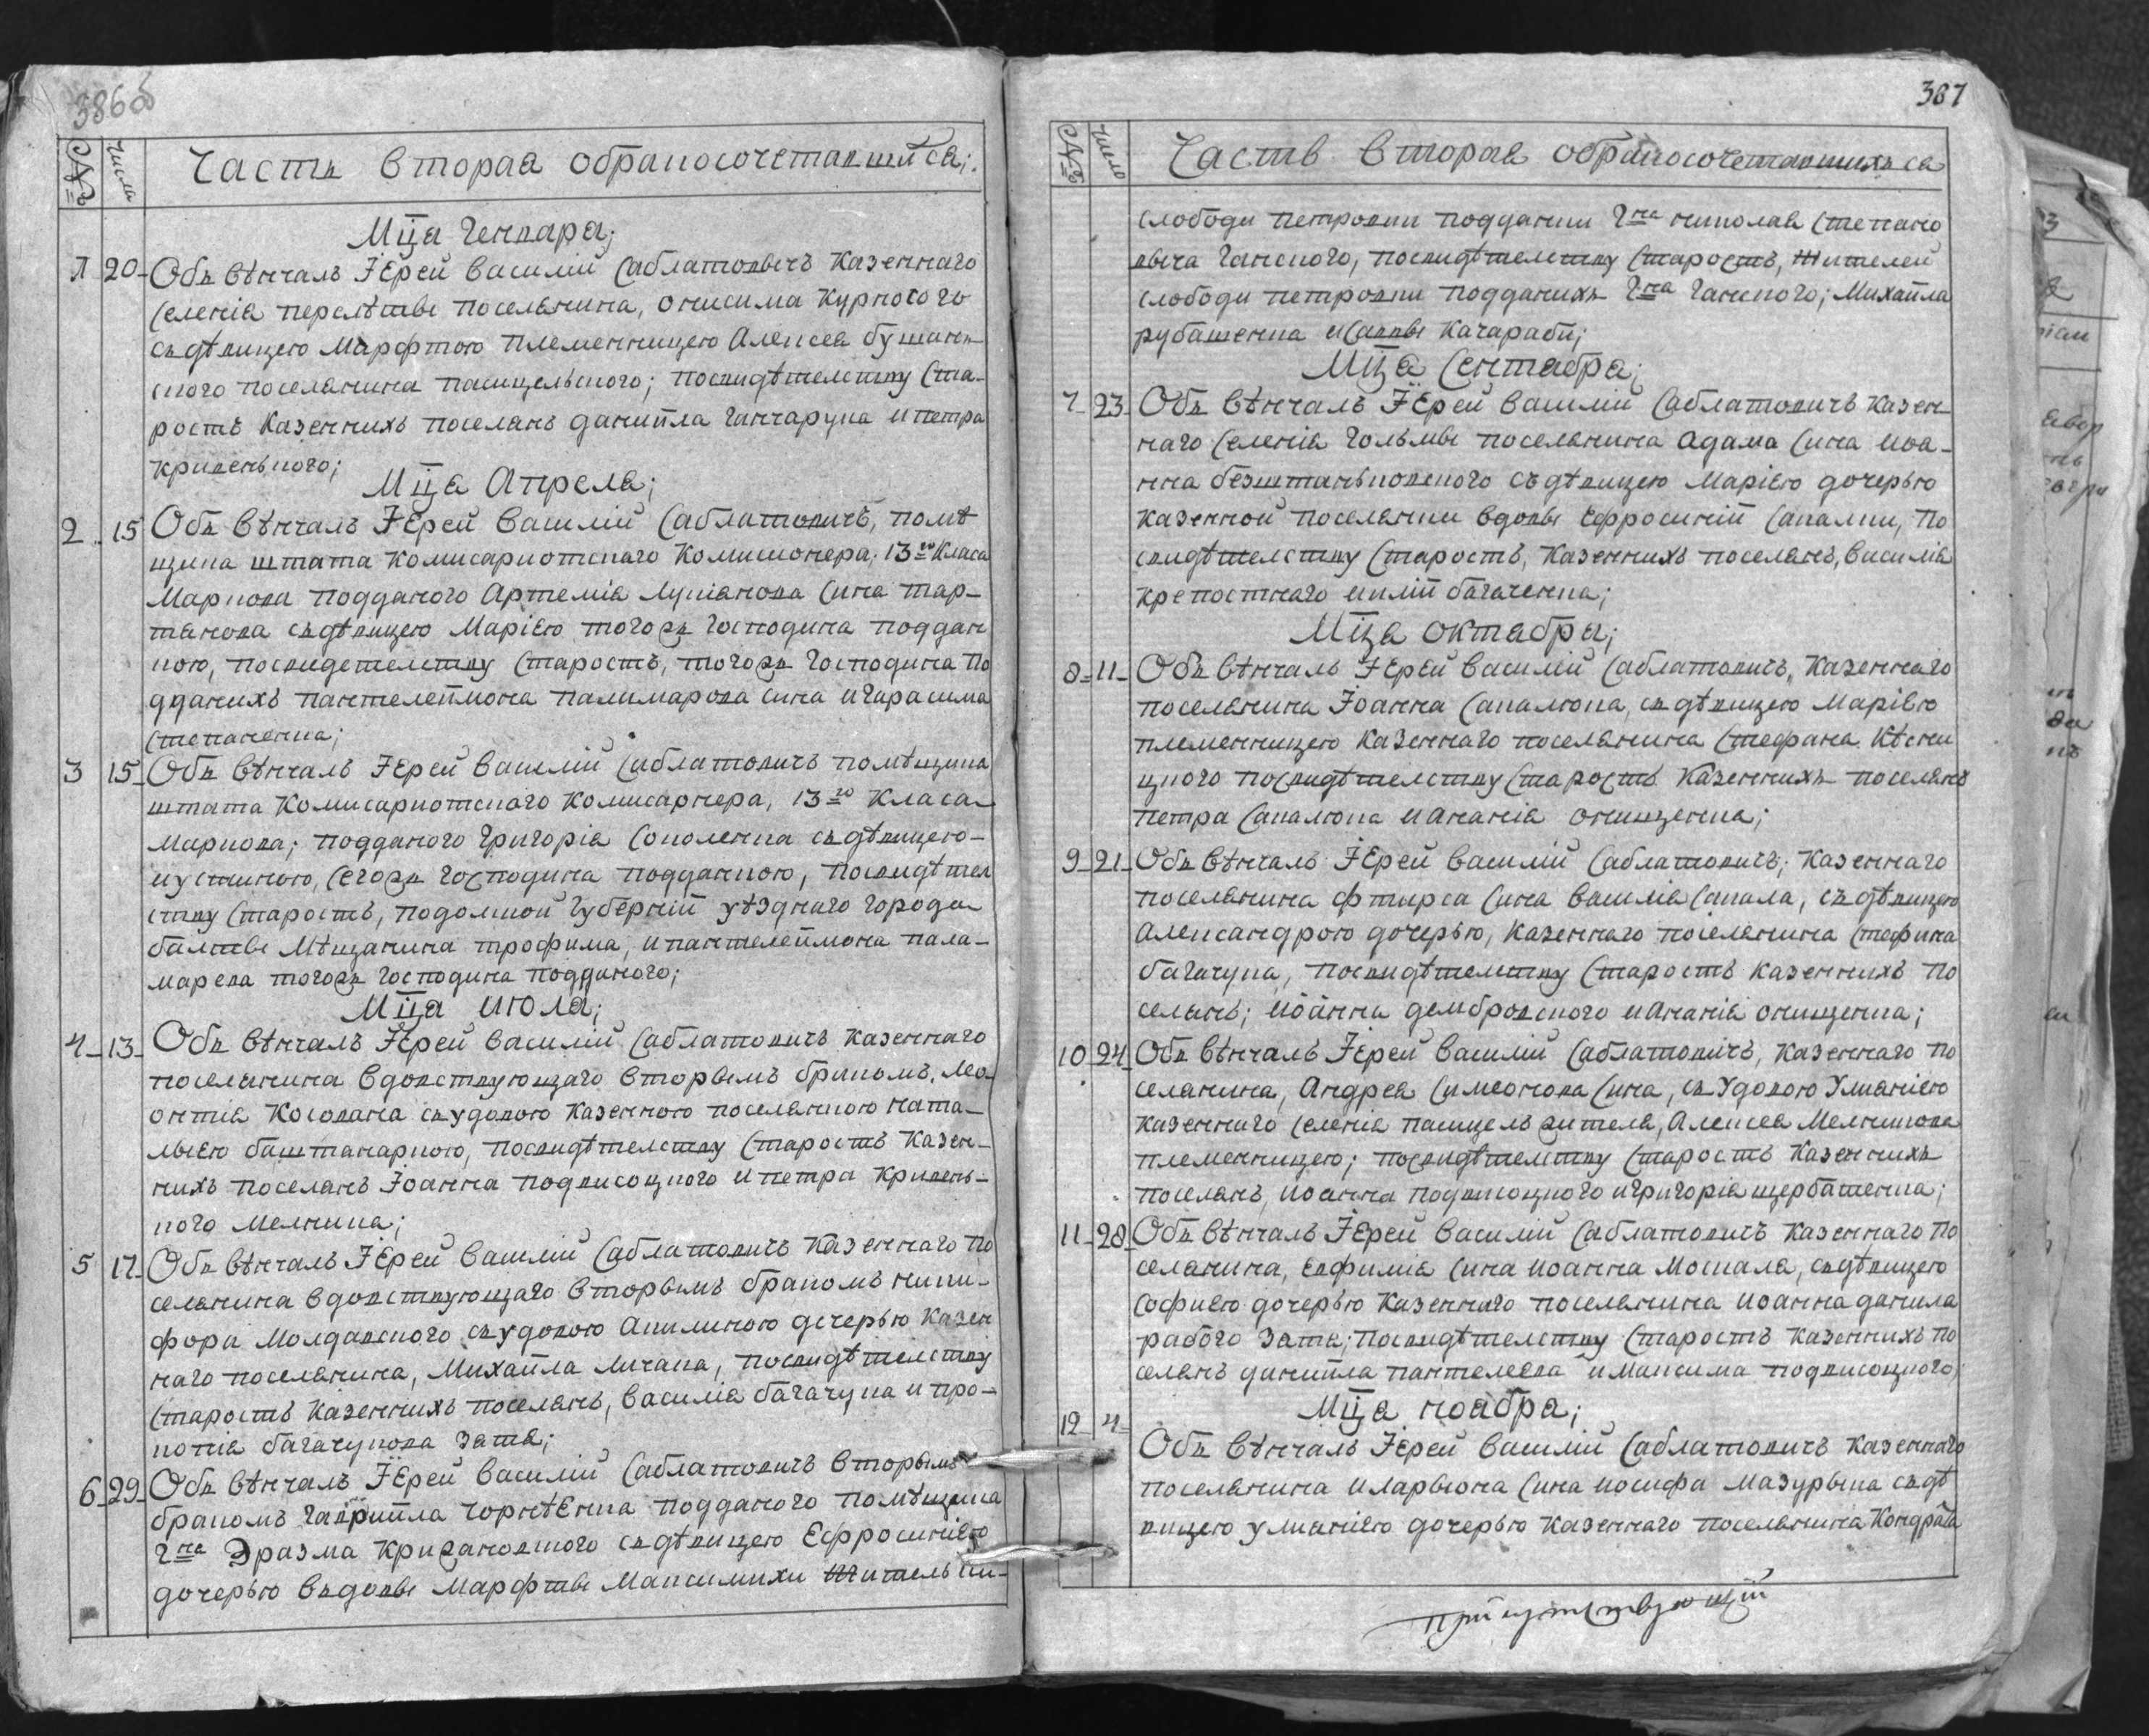 386об
Счетъ
число
Часть вторая обракосочетавшихся;
Мца Генваря;
1 20 Обвѣнчалъ Іерей Василій Саблатовичъ казеннаго
селенія перелѣтве поселянина, онисима Курносого
съ дѣвицею Марфтою племенницею Алексея бушан-
ского поселянина пасицельского; посвидѣтелству Ста-
ростъ казеннихъ поселянъ даниїла Ганчарука и петра
кривенького;
Мца Апреля;
2 15 Обвѣнчалъ Іерей Василій Саблатовичъ, помѣ
щика штата комисариотскаго комисионера, 13го класа
Маркова подданого Артемія Лукіанова сина тар-
танова съ дѣвицею Маріею тогожъ Господина поддан
ною, посвидетелству Старостъ, тогожъ Господина по
дданихъ пантелеймона паламарова сина и Гарасима
степаненка;
3 15 Обвѣнчалъ Іерей Василій Саблатовичъ помѣщика
штата комисариотскаго комисарнера, 13го класа
Маркова; подданого Григорія Соколенка съ дѣвицею
иустиною, сегожъ Господина подданною, посвидѣтел
ству Старостъ, подолской Губерніи уѣзднаго Города
балтве Мѣщанина трофима, и пантелеймона пала-
марева тогожъ Господина подданого;
Мца июля;
4 13 Обвѣнчалъ Іерей Василій Саблатовичъ казеннаго
поселянина вдовствующаго вторымъ бракомъ, лео-
онтія Косована съ удовою казенною поселянкою ната-
лыею баштанарною, посвидѣтелству Старостъ казен-
нихъ поселянъ Іоанна подвисоцкого и петра кривень-
кого мелника;
5 17 Обвѣнчалъ Іерей Василій Саблатовичъ казеннаго по
селянина вдовствующаго вторымъ бракомъ ники-
фора Молдавского съ удовою Акилиною дочерью казен
наго поселянина, Михайла личака, посвидѣтелству
Старостъ казеннихъ поселянъ, Василія багачука и про-
копія багачукова зятя;
6 29 Обвѣнчалъ Іерей Василій Саблатовичъ вторымъ
бракомъ Гавриїла чорнѣенка подданого помѣщика
Гна Эразма крижановского съ дѣвицею Ефросиніею
дочерью вдовы Марфтве Максимихи жительки-
387
Счетъ
число
Часть вторая обракосочетавшихся
слободи петровки подданки Гна николая Степано
вича Ганского, посвидѣтелству Старостъ, жителей
слободи петровки подданихъ Гна Ганского; Михайла
рубашенка и Саввы Качараби;
Мца Сентабра;
7 23 Обвѣнчалъ Іерей Василій Саблатовичъ казен-
наго селенія Гольмве поселянина Адама сина иоа-
нна безштаньковского съ дѣвицею Маріею дочерью
казенной поселянки вдовы Ефросиній Сакалки, по
свидѣтелству Старостъ, казеннихъ поселянъ, Василія
крепостнаго и илій багаченка;
Мца октабра;
8 11 Обвѣнчалъ Іерей Василій Саблатовичъ, казеннаго
поселянина Іоанна Сакалюка, съ дѣвицею Маріею
племенницею казеннаго поселянина Стефана Кѣсни
цкого посвидѣтелству Старостъ казеннихъ поселянъ
петра Сакалюка и Ананія онищенка;
9 21 Обвѣнчалъ Іерей Василій Саблатовичъ; казеннаго
поселянина фтирса сина Василія Сакала, съ дѣвицею
Александрою дочерью, казеннаго поселянина Стефана
багачука, посвидѣтелству Старостъ казеннихъ по
селянъ; иоанна дембровского и Ананія онищенка;
10 24 Обвѣнчалъ Іерей Василій Саблатовичъ, казеннаго по
селянина, Андрея Симеонова сина, съ удовою Улианіею
казеннаго селенія пасицель жителя, Алексея Мелникова
племенницею; посвидѣтелству Старостъ казеннихъ
поселянъ, иоанна подвисоцкого и Григорія щербатенка;
11 28 Обвѣнчалъ Іерей Василій Саблатовичъ казеннаго по
селянина, евфимія сина иоанна Москаля, съ дѣвицею
Софиею дочерью казеннаго поселянина иоанна данила
рабого зятя; посвидѣтелству Старостъ казеннихъ по
селянъ даниїла пантелеева и Максима подвисоцкого;
Мца ноабра;
12 4 Обвѣнчалъ Іерей Василій Саблатовичъ казеннаго
поселянина илариона сина иосифа Мазурыка съ дѣ
вицею улианіею дочерью казеннаго поселянина Кондрата
присутствующій